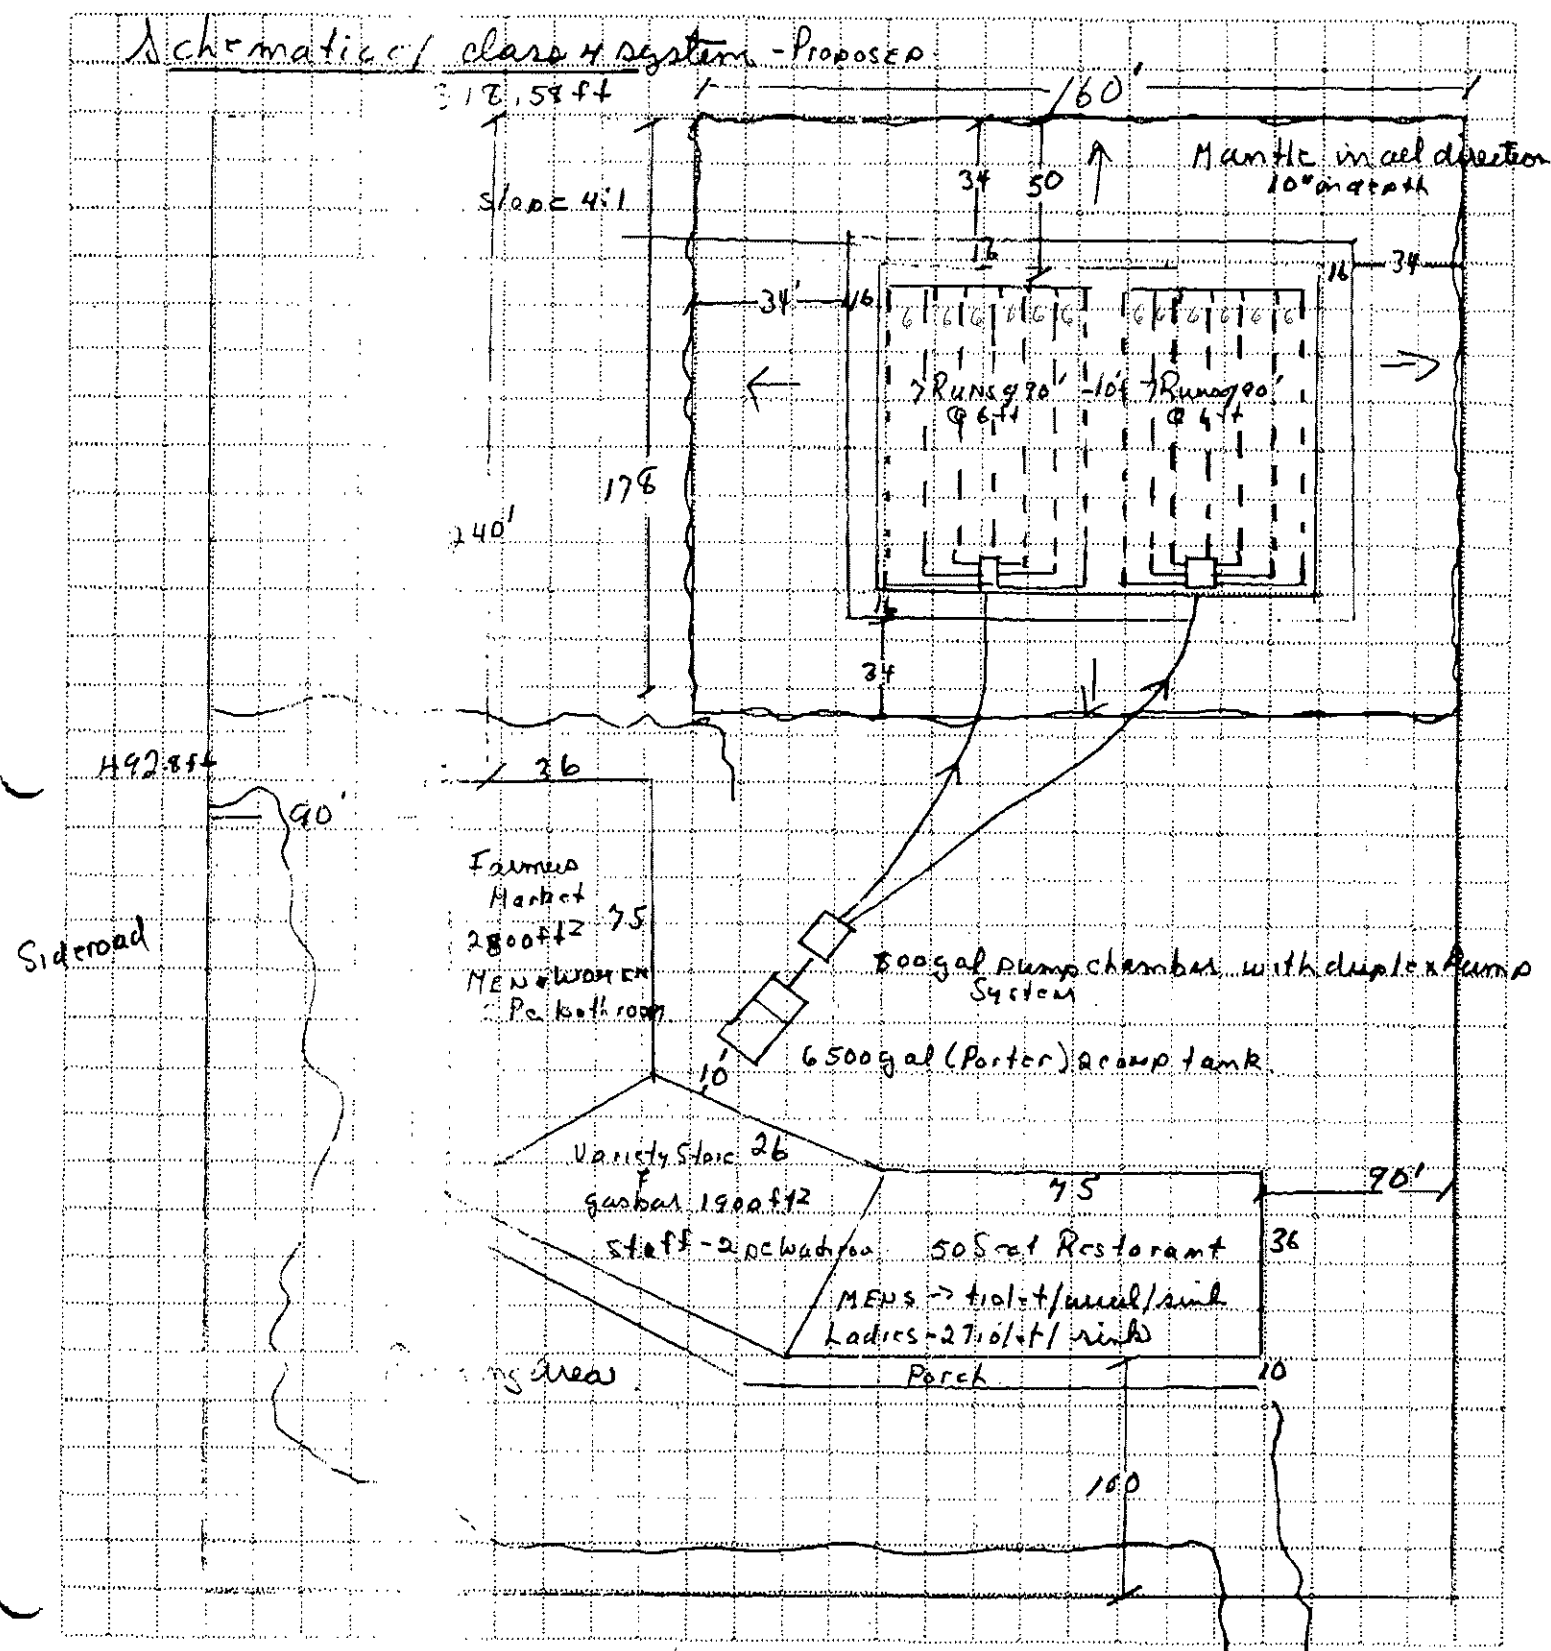 Schematic of class 4 system - Proposed
318.58ft
160'
Mantle in all direction
10" in depth
34 50
slope 4:1
16
34' 16
16 34
6 6 6 6 6 6
6 6 6 6 6 6
7 Runs @ 90' -10'- 7 Runs @ 90'
@ 6 ft @ 6 ft
178
240'
16
34
492.8ft
36
90'
Farmers
Market
2800ft² 75
MEN & WOMEN
Pc bathroom
Sideroad
800gal pump chamber with duplex Pump
System
6500gal (Porter) 2 comp tank
10'
Variety Store 26
&
gasbar 1900ft2
Staff - 2 pc
75
90'
50 Seat Restorant
36
MENS -> tiolet/ /sink
Ladies - 2 Tiolet / sink
ng Area
Porch
10
100